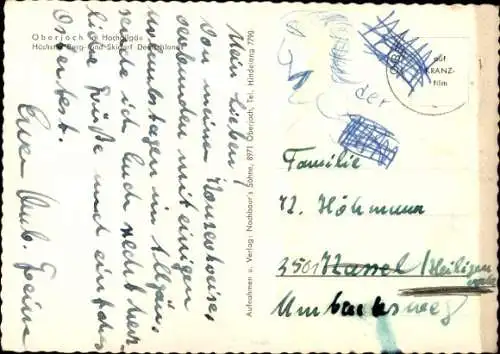 Oberjoch im Hochallgäu
Höchstes Berg- und Skidorf Deutschlands
Mein Lieben!
Von meiner
verbunden mit einigen
Urlaubstagen im Allgäu,
sende ich Euch recht herz-
liche Grüße und ein frohes
Osterfest.
Euer
Aufnahmen u. Verlag: Nachbaur's Söhne, 8971 Oberjoch, Tel. Hindelang 7790
auf
KRANZ-
film
der
Familie
H. Höhmann
3501 Kassel / Heiligen